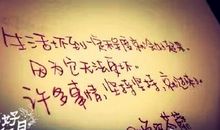 生活坏到一定程度就会好起来,
因为它无法更坏。
许多事情,坚持坚持,就过来了。
好日